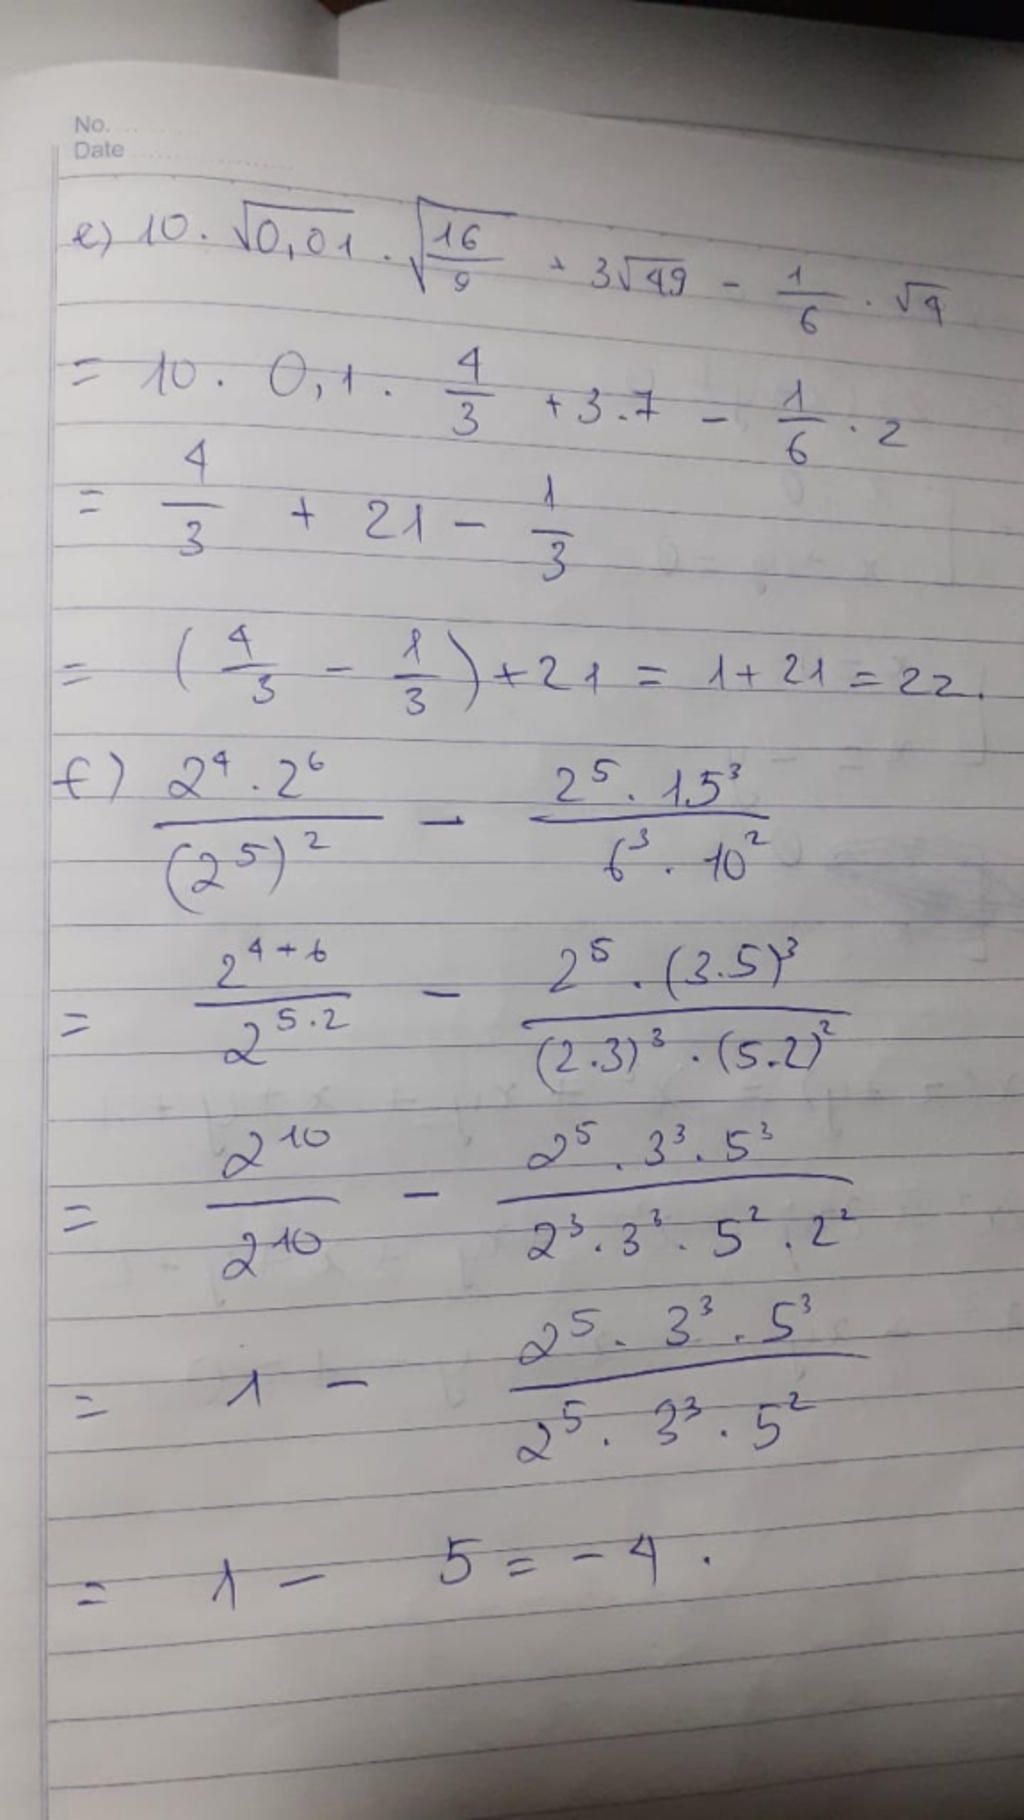 No.
Date
e) 10 . √0,01 . √(16/9) + 3√49 - 1/6 . √4
= 10 . 0,1 . 4/3 + 3.7 - 1/6 . 2
= 4/3 + 21 - 1/3
= (4/3 - 1/3) + 21 = 1 + 21 = 22.
f) (2⁴ . 2⁶)/(2⁵)² - (2⁵ . 15³)/(6³ . 10²)
= 2⁴⁺⁶/2⁵·² - (2⁵ . (3.5)³)/((2.3)³ . (5.2)²)
= 2¹⁰/2¹⁰ - (2⁵ . 3³ . 5³)/(2³ . 3³ . 5² . 2²)
= 1 - (2⁵ . 3³ . 5³)/(2⁵ . 3³ . 5²)
= 1 - 5 = -4 .